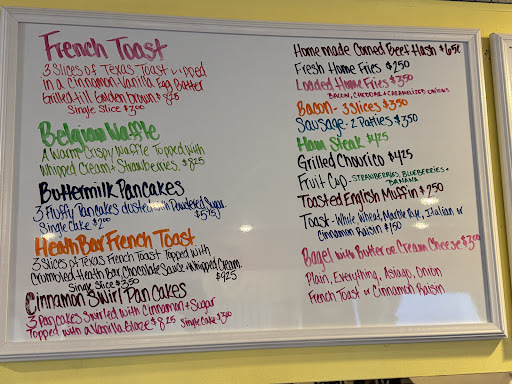 French Toast
3 Slices of Texas Toast dipped
in a Cinnamon-Vanilla Egg Batter
Grilled till Golden brown $8
Single Slice $3.00
Belgian Waffle
A Warm Crispy Waffle Topped with
Whipped Cream + Strawberries. $8.25
Buttermilk Pancakes
3 Fluffy Pancakes dusted with Powdered Sugar.
Single Cake $2.00 $5.75
Heath Bar French Toast
3 Slices of Texas French Toast Topped with
Crumbled Heath Bar, Chocolate Sauce + Whipped Cream.
Single Slice $3.50 $9.25
Cinnamon Swirl Pancakes
3 Pancakes Swirled with Cinnamon + Sugar
Topped with a Vanilla Glaze $8.25 Single Cake $3.00
Homemade Corned Beef Hash $6.50
Fresh Home Fries $2.50
Loaded Home Fries $3.50
Bacon, Cheddar + Caramelized Onions
Bacon - 3 Slices $3.50
Sausage - 2 Patties $3.50
Ham Steak $4.25
Grilled Chourico $4.25
Fruit Cup - Strawberries, Blueberries +
Banana
Toasted English Muffin $2.50
Toast - White, Wheat, Marble Rye, Italian or
Cinnamon Raisin $1.50
Bagel with Butter or Cream Cheese $3.00
Plain, Everything, Asiago, Onion
French Toast or Cinnamon Raisin